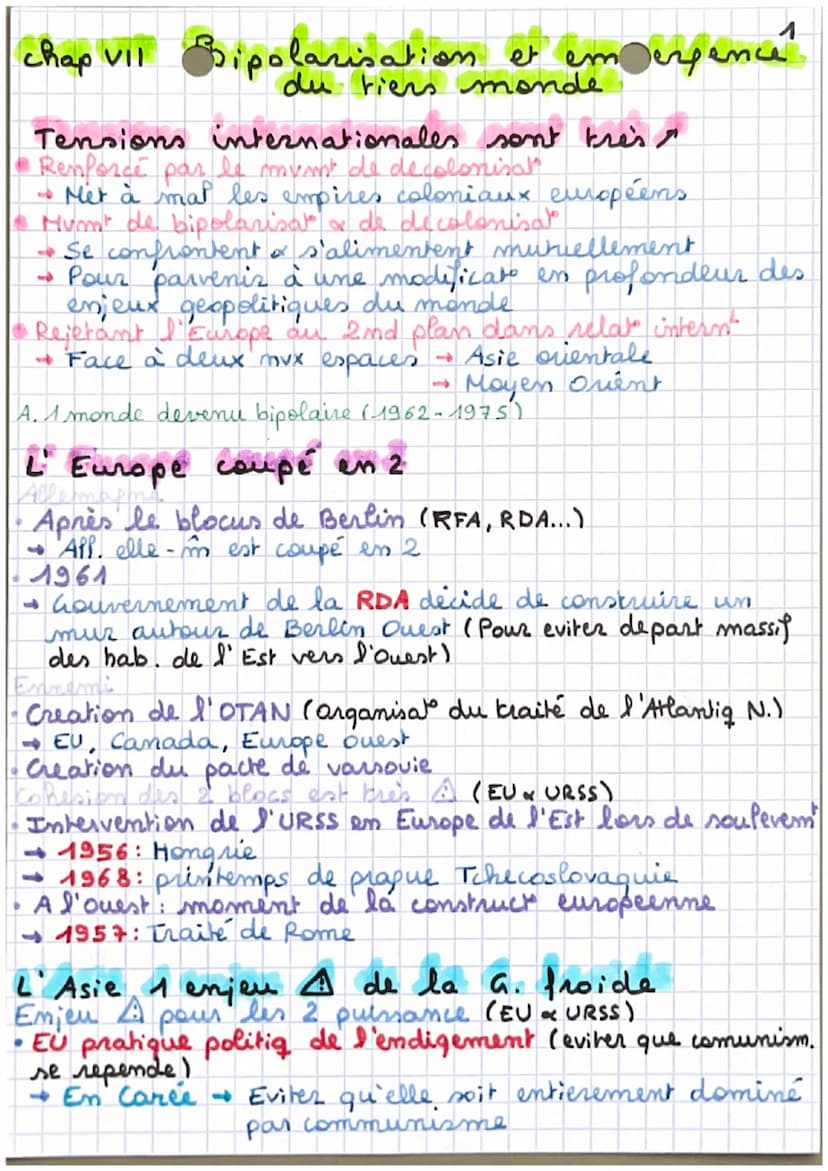 1
Chap VII Bipolarisation et emergence
du tiers monde
Tensions internationales sont très ↗
• Renforcé par le mvmt de decolonisat°
→ Met à mal les empires coloniaux européens
• Mvmt de bipolarisat° & de decolonisat°
→ Se confrontent & s'alimentent mutuellement
→ Pour parvenir à une modificat° en profondeur des
enjeux geopolitiques du monde
• Rejetant l'Europe au 2nd plan dans relat° internt
→ Face à deux nvx espaces → Asie orientale
→ Moyen Orient
A. 1 monde devenu bipolaire (1962-1975)
L'Europe coupé en 2
Allemagne
• Après le blocus de Berlin (RFA, RDA...)
→ All. elle-m̂ est coupé en 2
• 1961
→ Gouvernement de la RDA décide de construire un
mur autour de Berlin Ouest (Pour eviter depart massif
des hab. de l'Est vers l'Ouest)
Ennemi
• Creation de l'OTAN (organisat° du traité de l'Atlantiq N.)
→ EU, Canada, Europe ouest
• Creation du pacte de varsovie
Cohesion des 2 blocs est très ⚠ (EU & URSS)
• Intervention de l'URSS en Europe de l'Est lors de soulevemt
→ 1956: Hongrie
→ 1968: printemps de prague Tchecoslovaquie
• A l'ouest: moment de la construct° europeenne
→ 1957: Traité de Rome
L'Asie 1 enjeu ⚠ de la G. froide
Enjeu ⚠ pour les 2 puissance (EU & URSS)
• EU pratique politiq de l'endigement (eviter que comunism.
se repende)
→ En Corée → Eviter qu'elle soit entierement dominé
par communisme